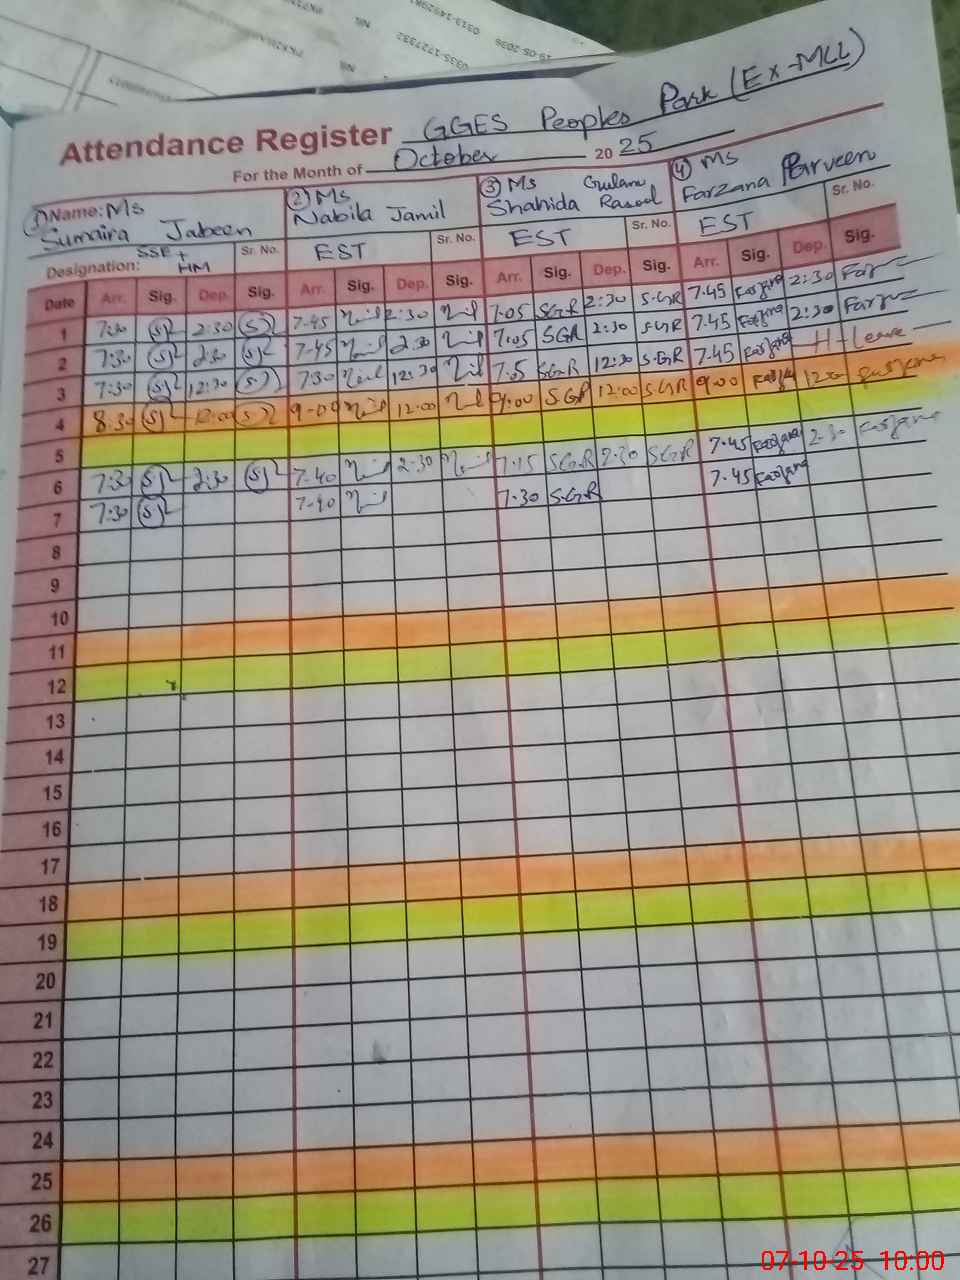 0313-1492981
NIL
0335-1727332
19-05-2036
NIL
Attendance Register GGES Peoples Park (Ex-MCL)
For the Month of October 20 25
① Name: Ms Sumaira Jabeen
② Ms Nabila Jamil
③ Ms Shahida Gulam Rasool
④ Ms Farzana Parveen
Designation: SSE + HM Sr. No. EST Sr. No. EST Sr. No. EST Sr. No.
Date Arr. Sig. Dep. Sig. Arr. Sig. Dep. Sig. Arr. Sig. Dep. Sig. Arr. Sig. Dep. Sig.
1 7:30 2:30 7-45 2:30 7:05 SGR 2:30 SGR 7.45 Farzana 2:30
2 7:30 2:30 7-45 2:30 7:05 SGR 2:30 SGR 7.45 Farzana 2:30
3 7:30 12:30 7:30 12:30 7:5 SGR 12:30 SGR 7.45 Farzana H-Leave
4 8:30 12:00 9-00 12:00 9:00 SGR 12:00 SGR 9:00
5
6 7:30 2:30 7-40 2-30 7:15 SGR 2:30 SGR 7.45 Farzana 2-30 Farzana
7 7:30 7-40 7-30 SGR 7.45 Farzana
8
9
10
11
12
13
14
15
16
17
18
19
20
21
22
23
24
25
26
27
07-10-25 10:00